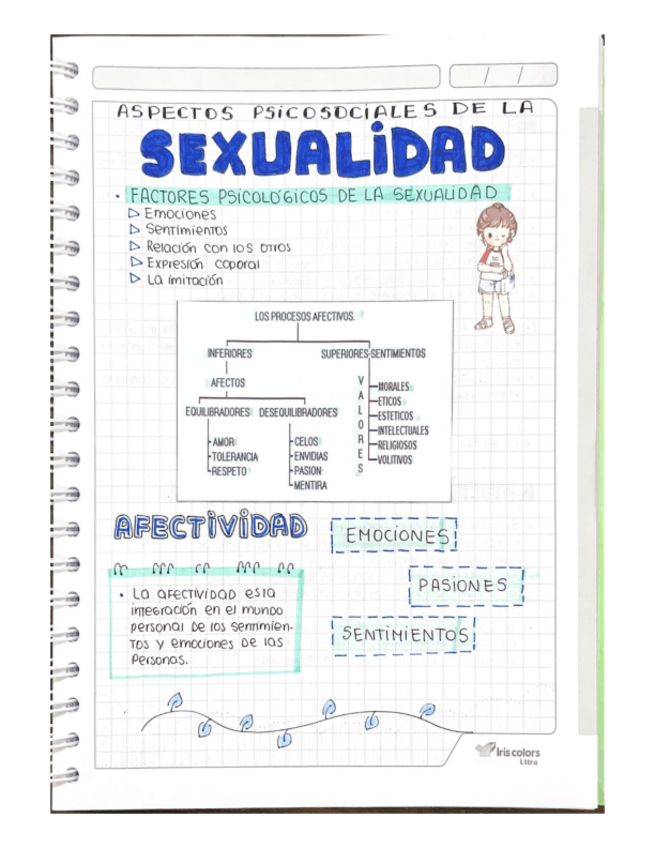 ASPECTOS PSICOSOCIALES DE LA
SEXUALIDAD
• FACTORES PSICOLÓGICOS DE LA SEXUALIDAD
▷ Emociones
▷ Sentimientos
▷ Relación con los otros
▷ Expresión coporal
▷ La imitación
LOS PROCESOS AFECTIVOS.
INFERIORES SUPERIORES-SENTIMIENTOS
AFECTOS
EQUILIBRADORES DESEQUILIBRADORES
-AMOR
-TOLERANCIA
-RESPETO
-CELOS
-ENVIDIAS
-PASION
-MENTIRA
VALORES
-MORALES
-ETICOS
-ESTETICOS
-INTELECTUALES
-RELIGIOSOS
-VOLITIVOS
AFECTIVIDAD
EMOCIONES
PASIONES
SENTIMIENTOS
• La afectividad es la
integración en el mundo
personal de los sentimien-
tos y emociones de las
Personas.
Iris colors
Ultra